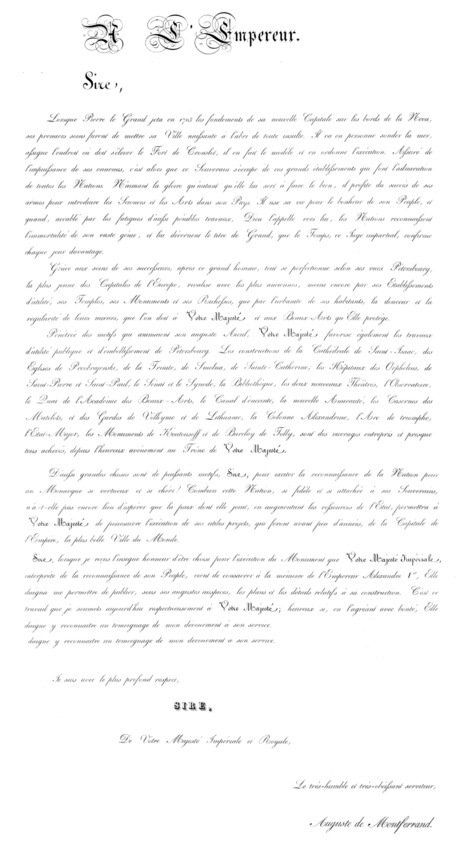 A L'Empereur.
Sire,
Lorsque Pierre le Grand jeta en 1703 les fondements de sa nouvelle Capitale sur les bords de la Neva,
ses premiers soins furent de mettre sa Ville naissante à l'abri de toute insulte. Il va en personne sonder la mer,
assigne l'endroit où doit s'élever le Fort de Cronslot, il en fait le modèle et en ordonne l'exécution. Assuré de
l'impuissance de ses ennemis, c'est alors que ce Souverain s'occupe de ces grands établissements qui font l'admiration
de toutes les Nations. N'aimant la gloire qu'autant qu'elle lui sert à faire le bien, il profite du succès de ses
armes pour introduire les Sciences et les Arts dans son Pays. Il use sa vie pour le bonheur de son Peuple, et
quand, accablé par les fatigues d'aussi pénibles travaux, Dieu l'appelle vers lui, les Nations reconnaissent
l'immortalité de son vaste génie, et lui décernent le titre de Grand, que le Temps, ce Juge impartial, confirme
chaque jour davantage.
Grâce aux soins de ses successeurs, après ce grand homme, tout se perfectionne selon ses vues. Pétersbourg,
la plus jeune des Capitales de l'Europe, rivalise avec les plus anciennes, moins encore par ses Etablissements
d'utilité, ses Temples, ses Monuments et ses Richesses, que par l'urbanité de ses habitants, la douceur et la
régularité de leurs moeurs, que l'on doit à Votre Majesté et aux Beaux Arts qu'Elle protège.
Pénétrée des motifs qui animaient son auguste Aïeul, Votre Majesté favorise également les travaux
d'utilité publique et d'embellissement de Pétersbourg. Les constructions de la Cathédrale de Saint-Isaac, des
Eglises de Preobragensk, de la Trinité, de Smolna, de Sainte-Catherine, les Hôpitaux des Orphelins, de
Saint-Pierre et Saint-Paul, le Sénat et le Synode, la Bibliothèque, les deux nouveaux Théâtres, l'Observatoire,
le Quai de l'Académie des Beaux-Arts, le Canal d'enceinte, la nouvelle Amirauté, les Casernes des
Matelots, et des Gardes de Volhynie et de Lithuanie, la Colonne Alexandrine, l'Arc de triomphe,
l'Etat-Major, les Monuments de Koutousoff et de Barclay de Tolly, sont des ouvrages entrepris et presque
tous achevés, depuis l'heureux avènement au Trône de Votre Majesté.
D'aussi grandes choses sont de puissants motifs, Sire, pour exciter la reconnaissance de la Nation pour
un Monarque si vertueux et si chéri! Combien cette Nation, si fidèle et si attachée à ses Souverains,
n'a-t-elle pas encore lieu d'espérer que la paix dont elle jouit, en augmentant les ressources de l'Etat, permettra à
Votre Majesté de poursuivre l'exécution de ses utiles projets, qui feront avant peu d'années, de la Capitale de
l'Empire, la plus belle Ville du Monde.
Sire, lorsque je reçus l'insigne honneur d'être choisi pour l'exécution du Monument que Votre Majesté Impériale,
interprète de la reconnaissance de son Peuple, vient de consacrer à la mémoire de l'Empereur Alexandre 1er, Elle
daigna me permettre de publier, sous ses augustes auspices, les plans et les détails relatifs à sa construction. C'est ce
travail que je soumets aujourd'hui respectueusement à Votre Majesté; heureux si, en l'agréant avec bonté, Elle
daigne y reconnaitre un temoignage de mon devouement a son service.
daigne y reconnaitre un temoignage de mon devouement a son service.
Je suis avec le plus profond respect,
SIRE,
De Votre Majesté Impériale et Royale,
Le très-humble et très-obéissant serviteur,
Auguste de Montferrand.